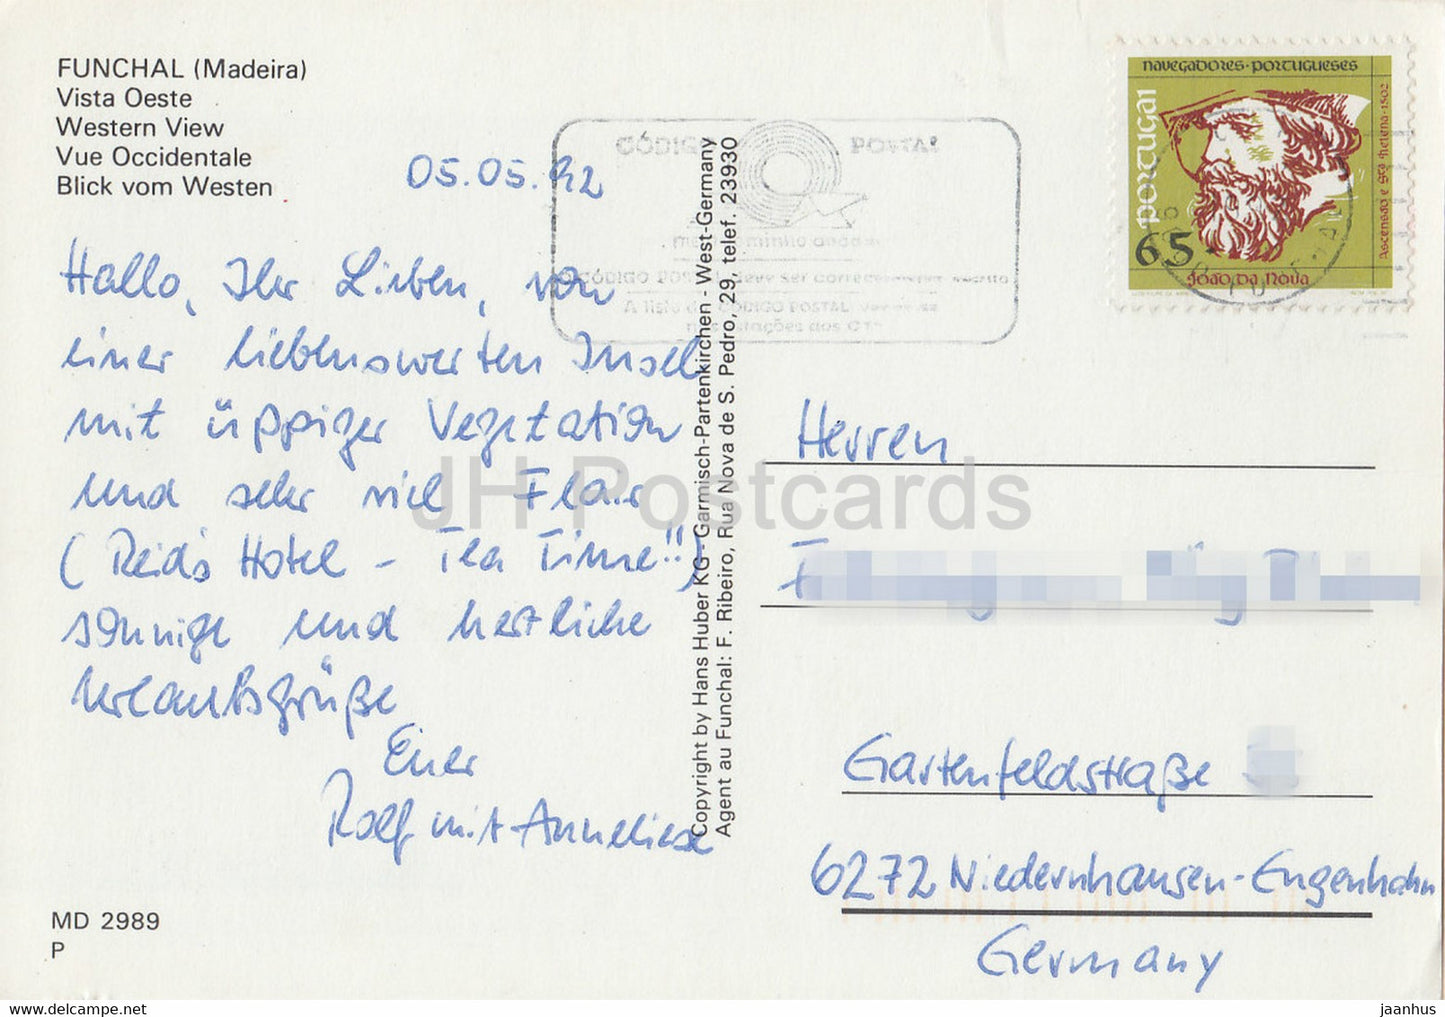 FUNCHAL (Madeira)
Vista Oeste
Western View
Vue Occidentale
Blick vom Westen
05.05.92
Hallo, Ihr Lieben, von
einer liebenswerten Insel
mit üppiger Vegetation
und sehr viel Flair
(Reid's Hotel – Tea Time!!)
sonnige und herzliche
Urlaubsgrüße
Euer
Rolf mit Anneliese
MD 2989
P
Copyright by Hans Huber KG - Garmisch-Partenkirchen - West-Germany
Agent au Funchal: F. Ribeiro, Rua Nova de S. Pedro, 29, telef. 23930
CÓDIGO POSTAL
CÓDIGO POSTAL deve ser
A lista do CÓDIGO POSTAL
nas estações dos CTT
navegadores·portugueses
portugal
65
João da Nova
Ascensão e Sta Helena·1502
Herren
Gartenfeldstraße
6272 Niedernhausen-Engenhahn
Germany
JH Postcards
jaanhus